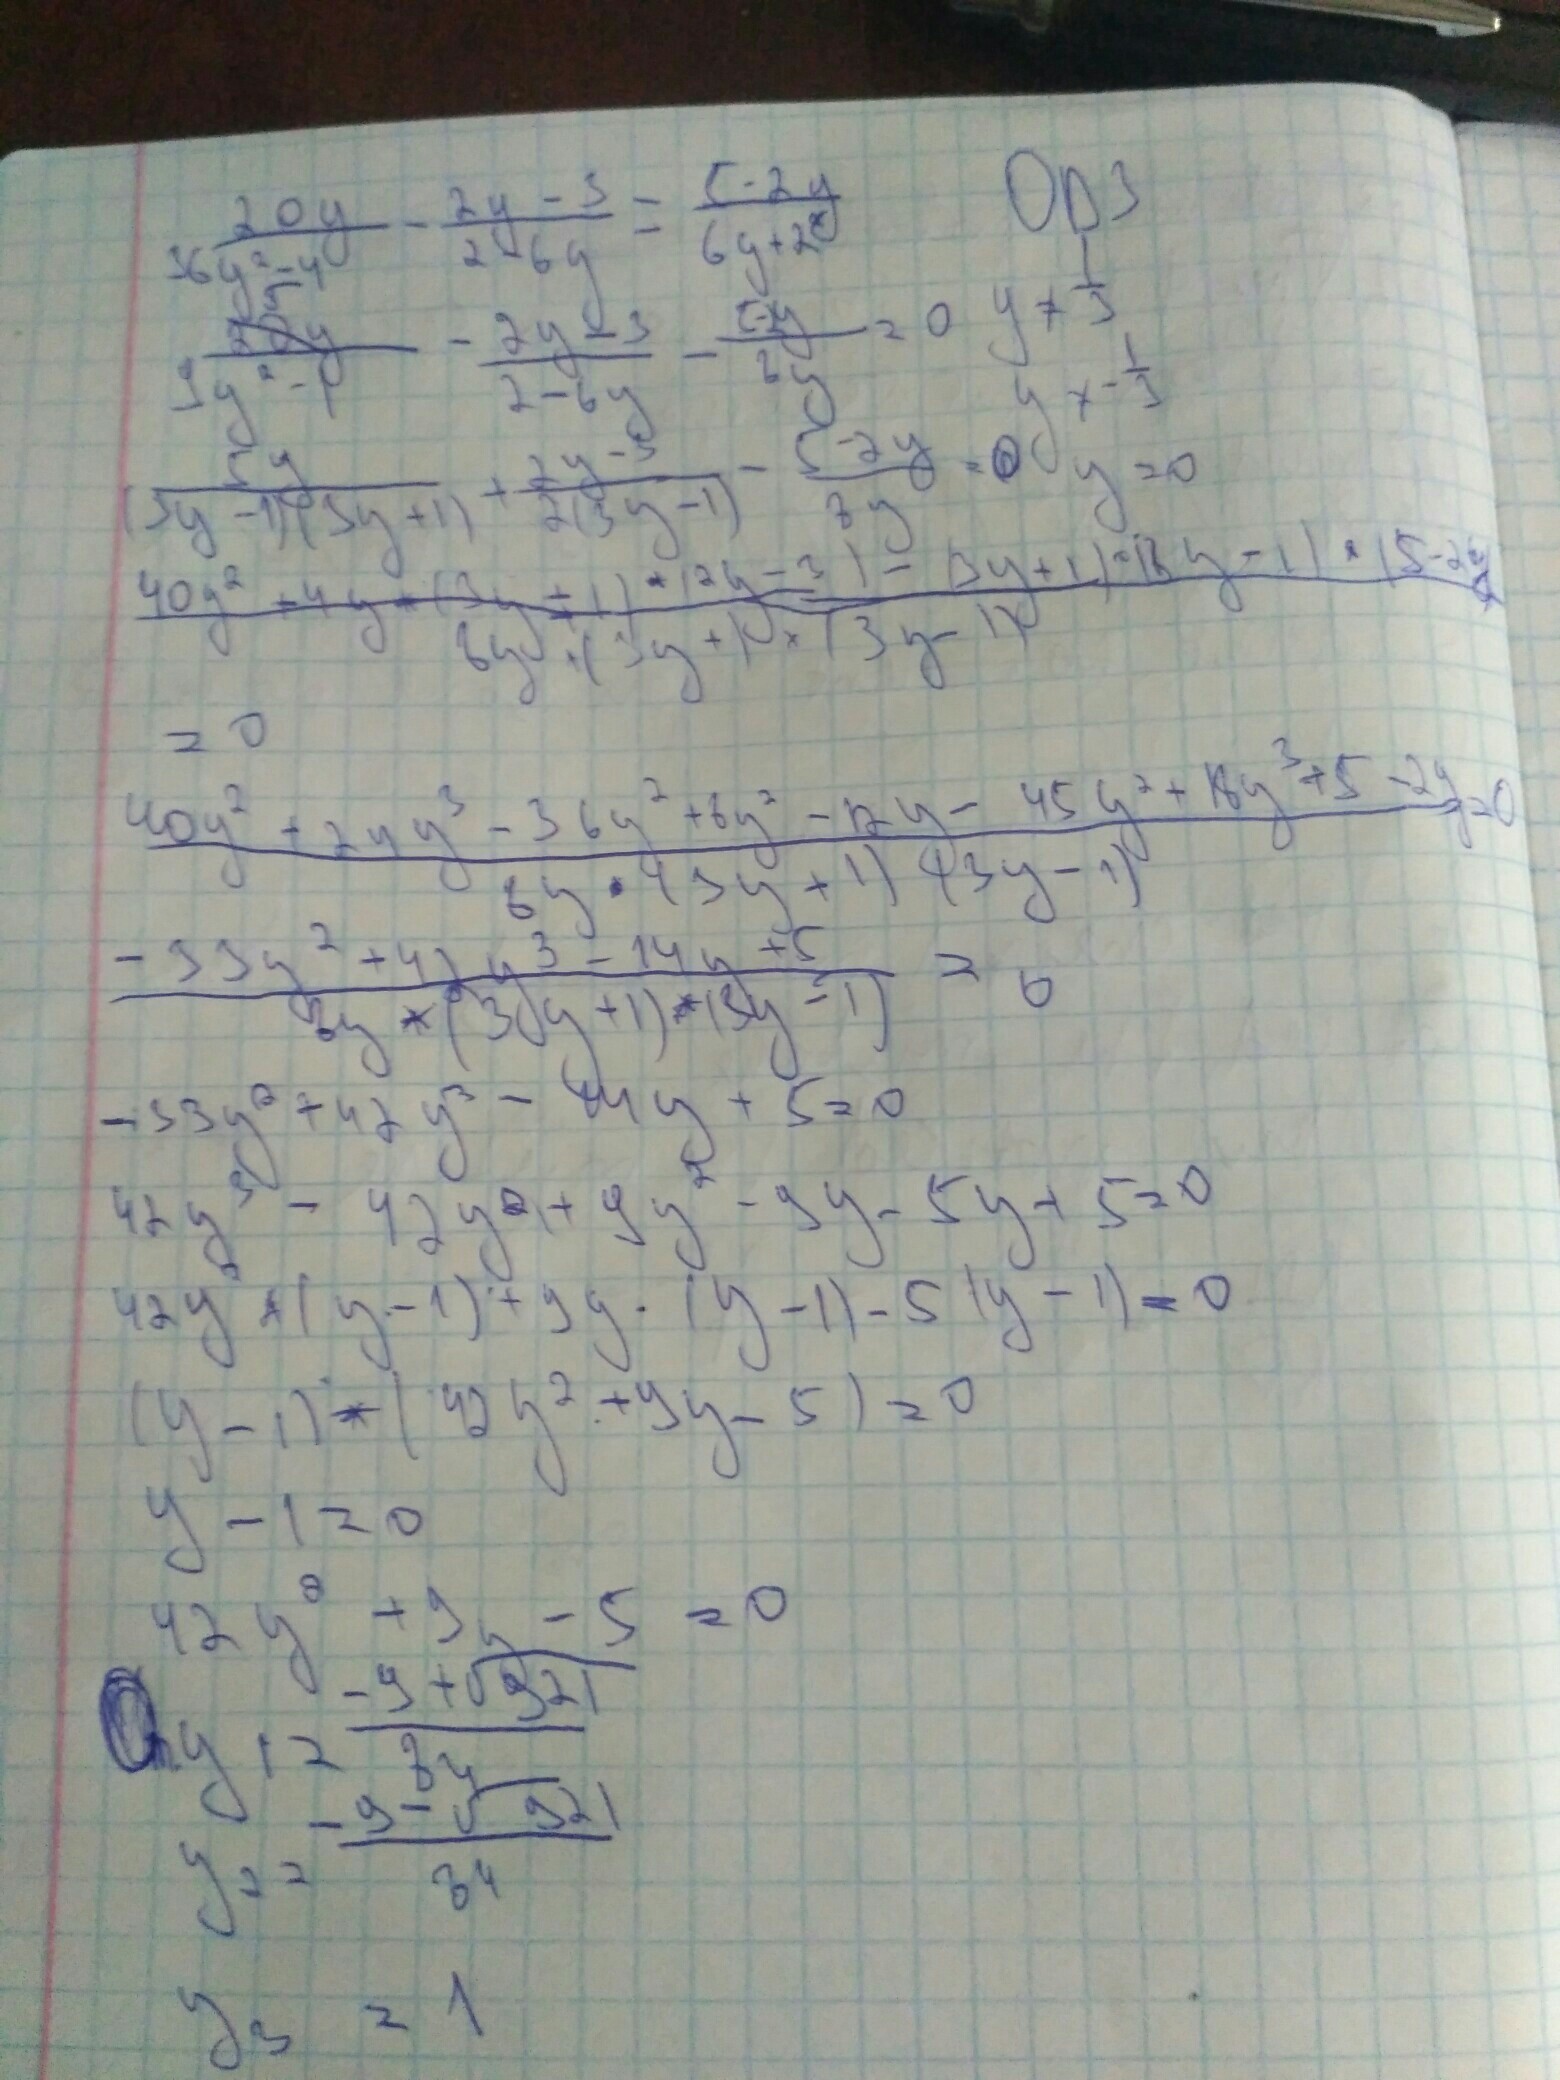 20y/36y²-4 - 2y-3/2-6y = 5-2y/6y+2 ОДЗ
/9y²-1 - 2y-3/2-6y - 5-2y/8y = 0 y ≠ 1/3
5y/(3y-1)(3y+1) + 2y-3/2(3y-1) - 5-2y/8y = 0 y ≠ -1/3
y = 0
40y² + 4y*(3y+1)*(2y-3)-(3y+1)*(3y-1)*(5-2y)/8y*(3y+1)*(3y-1)
= 0
40y²+24y³-36y²+8y²-12y-45y²+18y³+5-2y/8y*(3y+1)(3y-1) = 0
-33y²+42y³-14y+5/8y*(3y+1)*(3y-1) = 0
-33y²+42y³-14y+5=0
42y³-42y²+9y²-9y-5y+5=0
42y²*(y-1)+9y·(y-1)-5(y-1)=0
(y-1)*(42y²+9y-5)=0
y-1=0
42y²+9y-5=0
y1= -9+√921/84
y2= -9-√921/84
y3 = 1